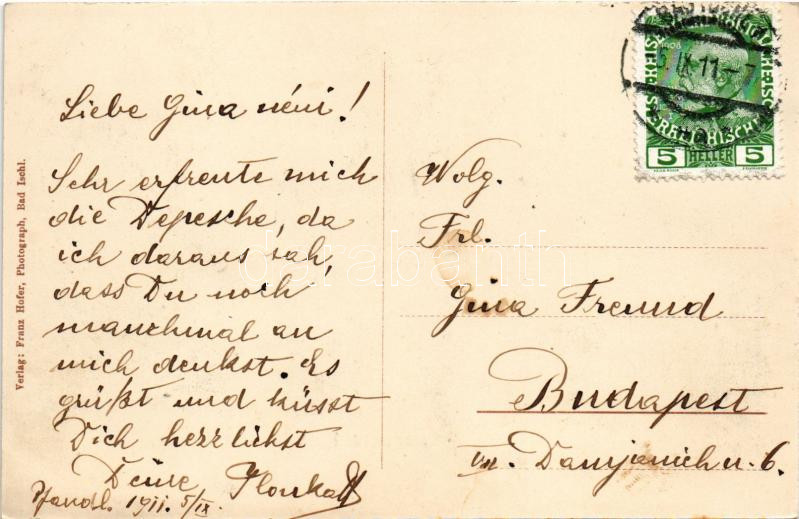 Liebe Gina néni!
Sehr erfreute mich
die Depesche, da
ich daraus sah,
dass Du noch
manchmal an
mich denkst. Es
grüßt und küsst
Dich herzlichst
Deine Ilonka
Pfandl. 1911. 5/IX.
Wolg.
Frl.
Gina Freund
Budapest
VII. Damjanich u. 6.
Verlag: Franz Hofer, Photograph, Bad Ischl.
5 HELLER 5
1908
5.IX.11
darabanth